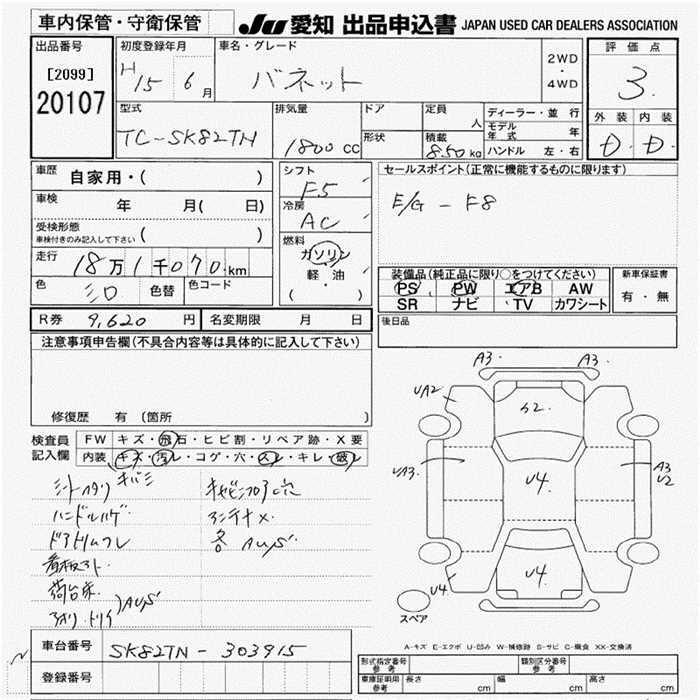 車内保管・守衛保管
JU 愛知 出品申込書 JAPAN USED CAR DEALERS ASSOCIATION
出品番号
[2099]
20107
初度登録年月
H15 6月
車名・グレード
バネット
2WD
・
4WD
評価点
3
外装 内装
D・D
型式
TC-SK82TN
排気量
1800cc
ドア
形状
定員
人
積載
850kg
ディーラー・並行
モデル年式 年
ハンドル 左・右
車歴 自家用・( )
車検 年 月( 日)
受検形態
車検付きのみ記入して下さい ( )
走行 18万1千070km
色 シロ 色替 色コード
シフト
F5
冷房
AC
燃料
ガソリン
軽・油
( ・ )
セールスポイント(正常に機能するものに限ります)
E/G - F8
装備品(純正品に限り○をつけてください)
PS PW エアB AW
SR ナビ TV カワシート
新車保証書
有・無
後日品
R券 9,620円 名変期限 月 日
注意事項申告欄(不具合内容等は具体的に記入して下さい)
修復歴 有(箇所 )
検査員
記入欄
FW キズ・飛石・ヒビ割・リペア跡・X要
内装 キズ・汚レ・コゲ・穴・スレ・キレ・破レ
シートヘタリ キバミ
ハンドルハゲ
ドアトリムワレ
看板アト
荷台床
アオリ・トリイ)AUS
キャビンフロア穴
アンテナ×
各AUS
A3 A3
UA2
S2
UA3
U4
A3
U2
U4
U4
スペア
A-キズ E-エクボ U-凹み W-補修跡 S-サビ C-腐食 XX-交換済
車台番号 SK82TN-303915
登録番号
形式指定番号
参考
類別区分番号
参考
車庫証明用
参考
長さ cm 幅 cm 高さ cm